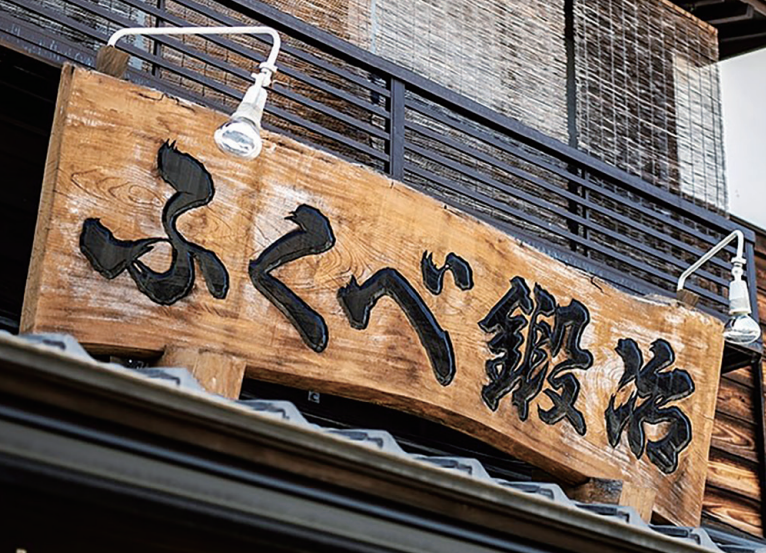 ふくべ鍛冶